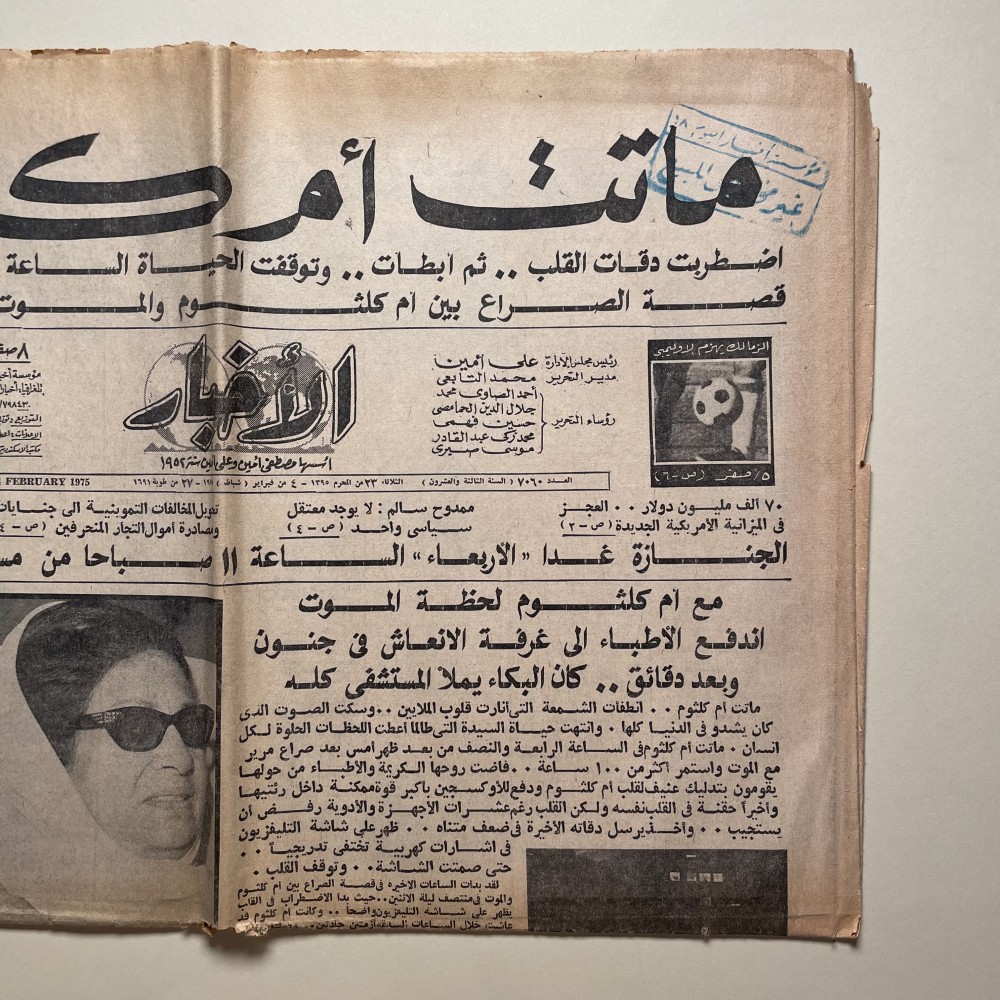 ماتت أم ك
مؤسسة أخبار اليوم
غير
اضطربت دقات القلب .. ثم ابطات .. وتوقفت الحيـاة الساعة
قصة الصراع بين ام كلثوم والموت
الزمالك يهزم الاوليمبى
٥/صفر (ص-٦)
رئيس مجلس الإدارة على أمين
مدير التحرير محمد التابعى
رؤساء التحرير
أحمد الصاوى محمد
جلال الدين الحمامصى
حسين فهمى
محمد زكى عبد القادر
موسى صبرى
الأخبار
أسسها مصطفى أمين وعلى أمين سنة ١٩٥٢
٨ صف
مؤسسة أخ
تلغرافيا: أخبار
العدد ٧٠٦٠ ( السنة الثالثة والعشرون ) الثلاثاء ٢٣ من المحرم ١٣٩٥ - ٤ من فبراير ( شباط ) - ٢٧ من طوبة ١٦٩١
FEBRUARY 1975
٧٠ ألف مليون دولار .. العجز
فى الميزانية الأمريكية الجديدة (ص-٢)
ممدوح سالم : لا يوجد معتقل
سياسى واحد (ص-٤)
تحويل المخالفات التموينية الى جنايات
ومصادرة أموال التجار المنحرفين (ص-٤
الجنازة غدا «الأربعاء» الساعة ١١ صباحا من مس
مع ام كلثوم لحظة الموت
اندفع الأطباء الى غرفة الانعاش فى جنون
وبعد دقائق .. كان البكاء يملأ المستشفى كله
ماتت أم كلثوم .. انطفات الشمعة التى أنارت قلوب الملايين .. وسكت الصوت الذى
كان يشدو فى الدنيا كلها . وانتهت حياة السيدة التى طالما أعطت اللحظات الحلوة لكل
انسان . ماتت أم كلثوم فى الساعة الرابعة والنصف من بعد ظهر أمس بعد صراع مرير
مع الموت واستمر أكثر من ١٠٠ ساعة .. فاضت روحها الكريمة والأطباء من حولها
يقومون بتدليك عنيف لقلب أم كلثوم ودفع للأوكسجين باكبر قوة ممكنة داخل رئتيها
وأخيرا حقنة فى القلب نفسه ولكن القلب رغم عشرات الأجهزة والأدوية رفض أن
يستجيب .. وأخذ يرسل دقاته الأخيرة فى ضعف متناه .. ظهر على شاشة التليفزيون
فى اشارات كهربية تختفى تدريجيا ..
حتى صمتت الشاشة .. وتوقف القلب .
لقد بدات الساعات الاخيرة فى قصة الصراع بين أم كلثوم
والموت فى منتصف ليلة الاثنين .. حيث بدأ الاضطراب فى القلب
يظهر على شاشة التليفزيون واضحا .. وكانت أم كلثوم قد
عاشت خلال الساعات السابقة أزمتين حادتين ..